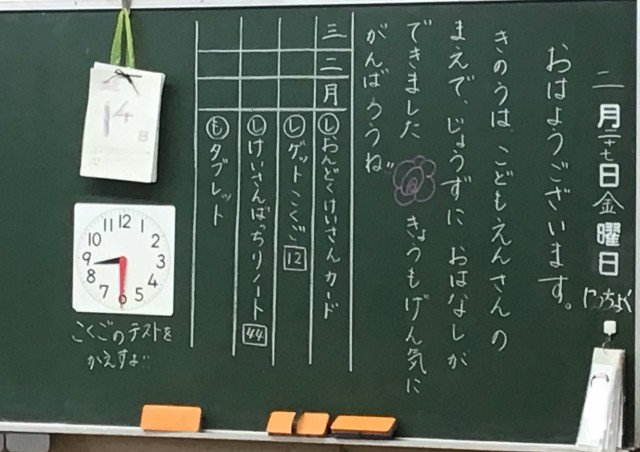 二月二十七日金曜日
にっちょく
おはようございます。
きのうは、こどもえんさんの
まえで、じょうずに おはなしが
できました きょうもげん気に
がんばろうね!!
三二月
しおんどくけいさんカード
しゲットこくご 12
しけいさんばっちりノート 44
もタブレット
14日
12
1
2
3
4
5
6
7
8
9
10
11
こくごのテストを
かえすよ!!